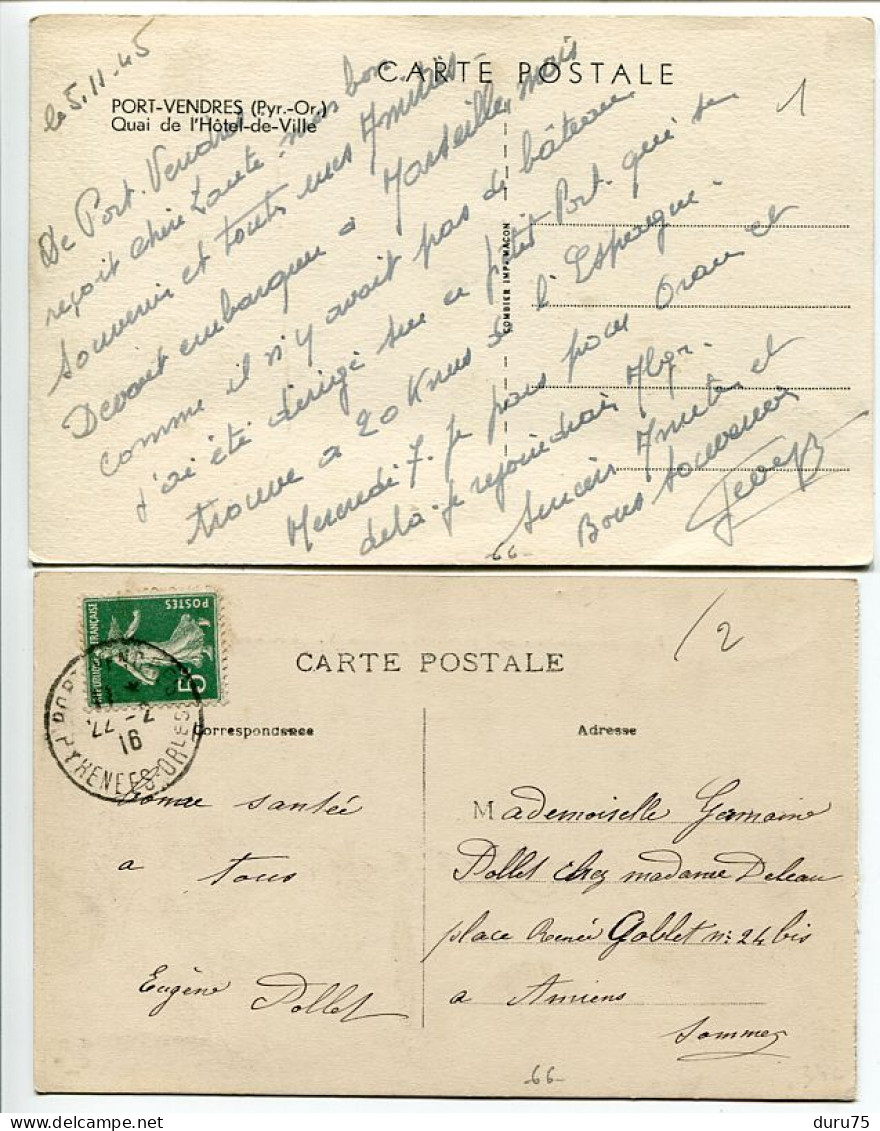 le 5.11.45
CARTE POSTALE
1
PORT-VENDRES (Pyr.-Or.)
Quai de l'Hôtel-de-Ville
De Port-Vendres
reçoit chère Tante mon bon
souvenir et toutes mes Amitiés
Devait embarquer a Marseille mais
comme il n'y avait pas de bâteau
j'ai été dérigé sur ce petit Port qui se
trouve a 20 Kms de l'Espagne.
Mercredi 7. je pars pour Oran et
delà je rejoindrais Alger.
Sincères Amitiés et
Bons Souvenirs
COMBIER IMP. MACON
66
2
POSTES
REPUBLIQUE FRANÇAISE
5
PYRENEES-ORLES
7-
16
CARTE POSTALE
Correspondance
Adresse
bonne santée
a tous
Eugène Pollet
Mademoiselle Germaine
Pollet chez madame Deleau
place Renée Goblet n: 24 bis
a Amiens
Somme
66
duru75